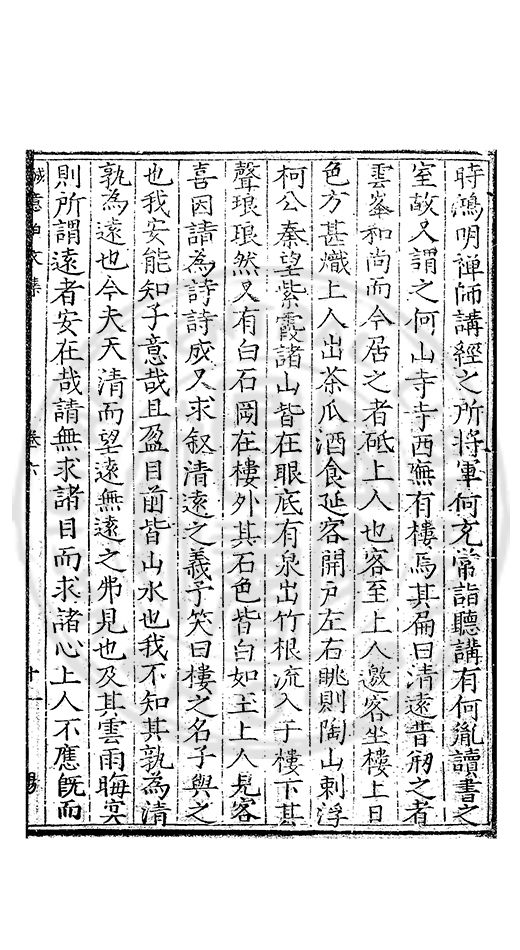 時鴻明禪師講經之所將軍何充常詣聽講有何胤讀書之
室故又謂之何山寺寺西廡有樓焉其扁曰清遠昔剏之者
雲峯和尚而今居之者砥上人也客至上人邀客坐樓上日
色方甚熾上人出茶瓜酒食延客開戸左右眺則陶山刺浮
柯公秦望紫霞諸山皆在眼底有泉出竹根流入于樓下其
聲琅琅然又有白石岡在樓外其石色皆白如玉上人見客
喜因請為詩詩成又求叙清遠之義予笑曰樓之名子與之
也我安能知子意哉且盈目前皆山水也我不知其孰為清
孰為遠也今夫天清而望遠無遠之弗見也及其雲雨晦冥
則所謂遠者安在哉請無求諸目而求諸心上人不應旣而
誠意伯文集
卷六
十一